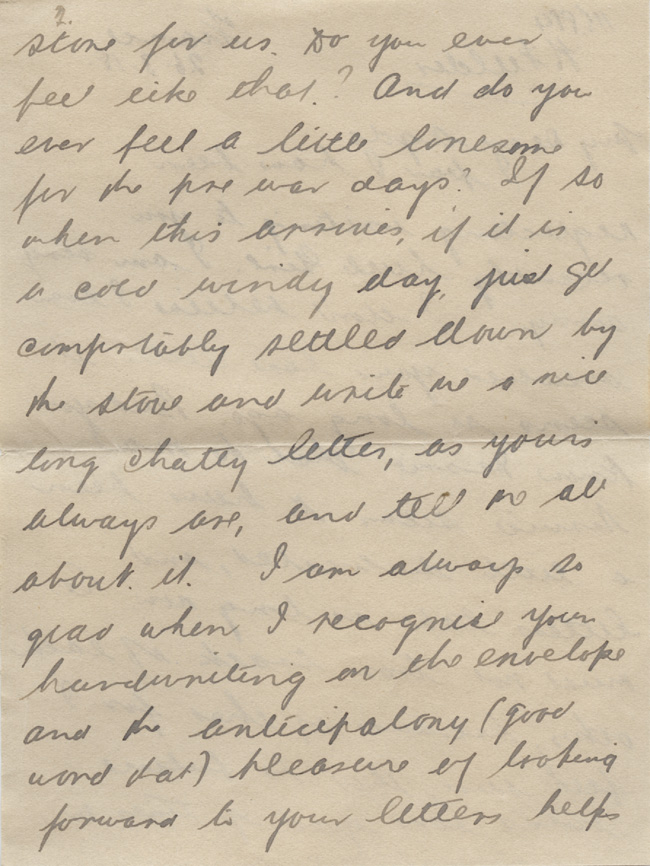 2.
store for us. Do you ever
feel like that? And do you
ever feel a little lonesome
for the pre war days? If so
when this arrives, if it is
a cold windy day, just get
comfortably settled down by
the stove and write me a nice
long chatty letter, as yours
always are, and tell me all
about it. I am always so
glad when I recognise your
handwriting on the envelope
and the anticipatory (good
word that) pleasure of looking
forward to your letters helps